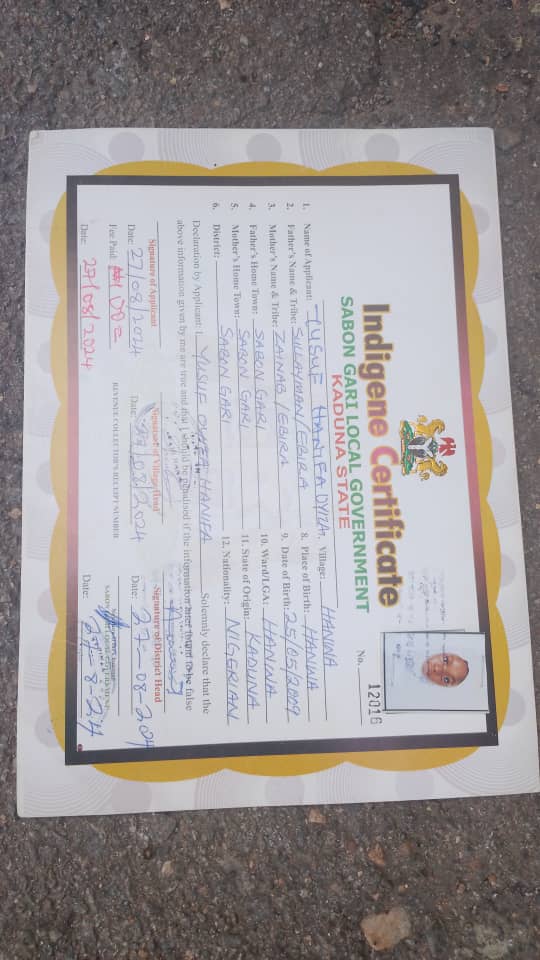 Indigene Certificate
SABON GARI LOCAL GOVERNMENT
KADUNA STATE
No. 12016
1. Name of Applicant: YUSUF HANIFA OYIZA 7. Village: HANWA
2. Father's Name & Tribe: SULAYMAN/EBIRA 8. Place of Birth: HANWA
3. Mother's Name & Tribe: ZAINAB/EBIRA 9. Date of Birth: 25/05/2009
4. Father's Home Town: SABON GARI 10. Ward/LGA: HANWA
5. Mother's Home Town: SABON GARI 11. State of Origin: KADUNA
6. District: SABON GARI 12. Nationality: NIGERIAN
Declaration by Applicant: I YUSUF OYIZA HANIFA Solemnly declare that the
above information given by me are true and that I should be penalised if the information are found to be false
Signature of Applicant Signature of Village Head Signature of District Head
Date: 27/08/2024 Date: 27/08/2024 Date: 27-08-204
Fee Paid: REVENUE COLLECTOR'S RECEIPT NUMBER
Date: 27/08/2024 Date: 27-8-24